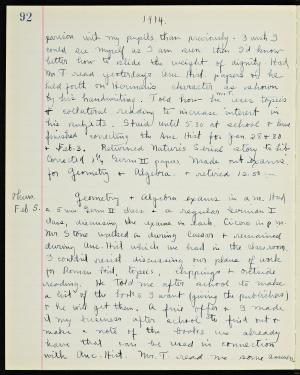 92
1914.
person with my pupils than previously. I wish I
could see myself as I am seen then I'd know
better how to slide the weight of dignity. Had
Mr. T read yesterdays Anc Hist. papers & he
held forth on Herman's character as shown
by his handwriting. Told how he uses topics
& collateral reading to increase interest in
his subjects. Staid until 5.30 at school & have
finished correcting the Anc Hist for Jan 28 & 30
& Feb. 2. Returned Natur's Serial story to lib
Corrected 1/2 Germ II papers. Made out exams.
for Geometry & Algebra. & retired 12.50
Thurs.
Feb 5.
Geometry & Algebra exams in a.m. Had
a 5 min Germ II class & a regular German I
class, discussing the exams in both. Cicero in p.m.
Mr Stone walked in during Caesar & remained
during Anc-Hist which we had in the classroom.
I couldn't resist discussing our plans of work
for Roman Hist, topics, clippings & outside
reading. He told me after school to make
a list of the books I want (giving the publishers)
& he will get them. A fine offer & I made
it my business after school to find out &
make a note of the books we already
have that can be used in connection
with Anc. Hist. Mr. T. read me some